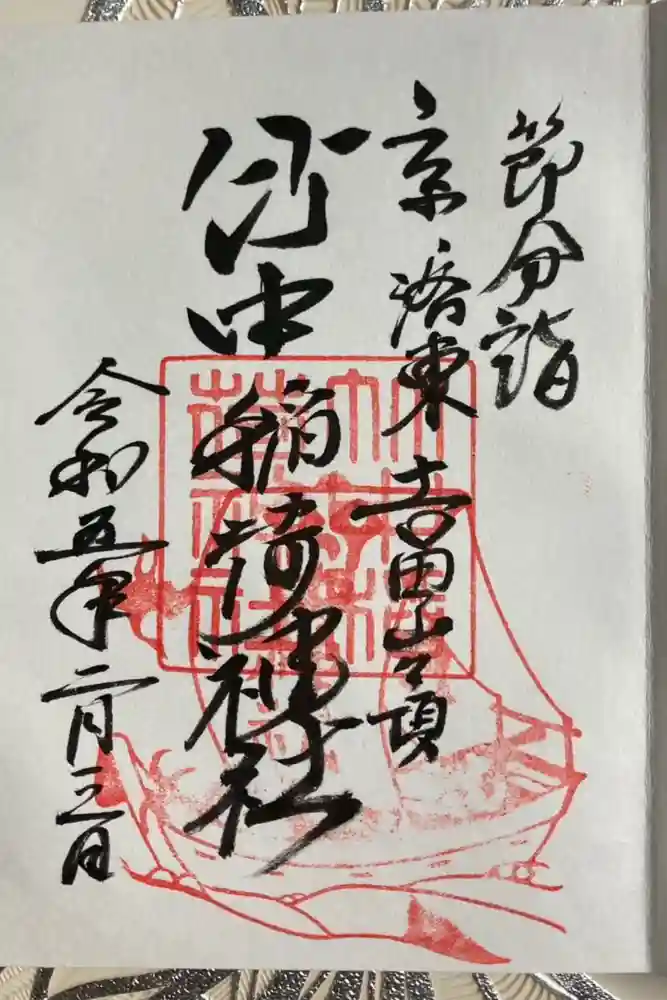 節分詣
京 洛東 吉田山々頂
竹中稲荷神社
令和五年二月三日